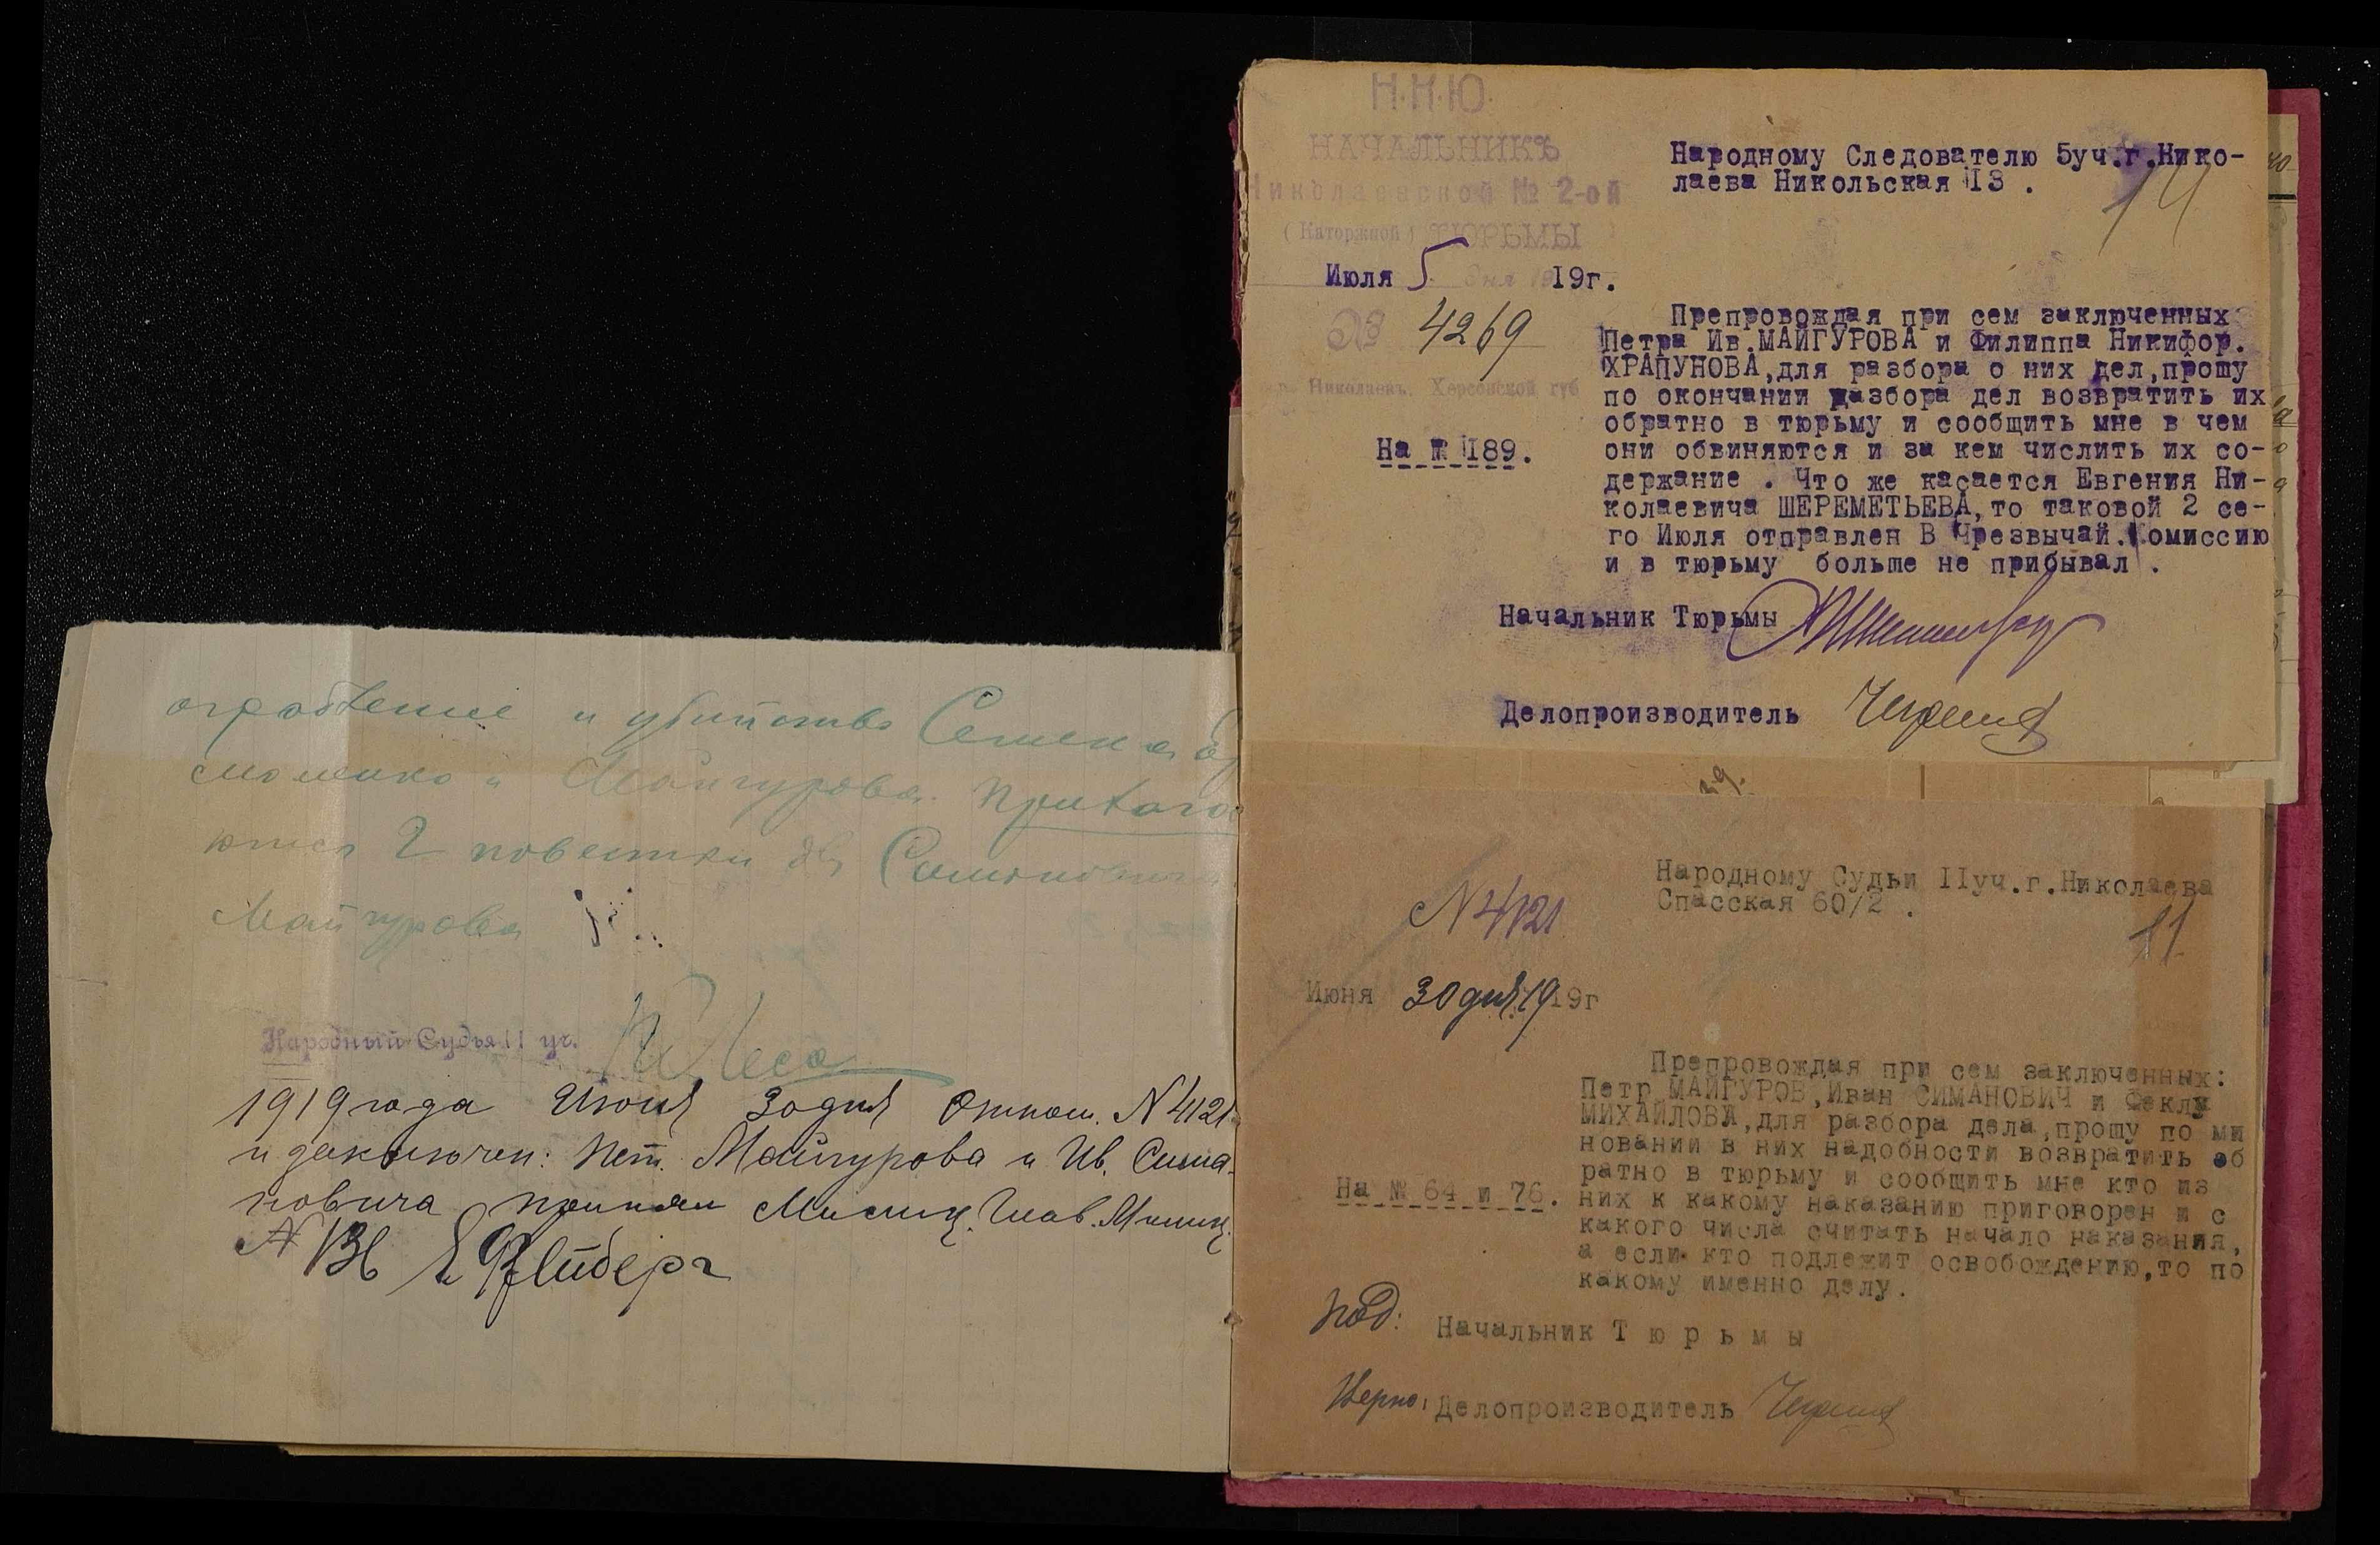 ограбление и убийство Семена
и Майгурова. Прилага
ются 2 повестки для
Майгурова
Народный Судья 11 уч.
1919 года Июня 30 дня Отнош. N 4121
и заключен: Пет. Майгурова и Ив. Сима-
новича принял Милиц. Глав. Милиц.
N 136
Н.К.Ю.
НАЧАЛЬНИКЪ
Николаевской № 2-ой
(Каторжной) ТЮРЬМЫ
Июля 5 дня 1919г.
№ 4269
гор. Николаевъ, Херсонской губ
На № 189.
Народному Следователю 5уч.г.Нико-
лаева Никольская I3 .
14
Препровождая при сем заключенных
Петра Ив.МАЙГУРОВА и Филиппа Никифор.
ХРАПУНОВА,для разбора о них дел,прошу
по окончании разбора дел возвратить их
обратно в тюрьму и сообщить мне в чем
они обвиняются и за кем числить их со-
держание . Что же касается Евгения Ни-
колаевича ШЕРЕМЕТЬЕВА,то таковой 2 се-
го Июля отправлен В Чрезвычай.Комиссию
и в тюрьму больше не прибывал .
Начальник Тюрьмы
Делопроизводитель
N 4121
Народному Судьи IIуч.г.Николаева
Спасская 60/2 .
11
Июня 30 дня 1919г
На № 64 и 76.
Препровождая при сем заключенных:
Петр МАЙГУРОВ,Иван СИМАНОВИЧ и Феклу
МИХАЙЛОВА,для разбора дела,прошу по ми
новании в них надобности возвратить об
ратно в тюрьму и сообщить мне кто из
них к какому наказанию приговорен и с
какого числа считать начало наказания,
а если кто подлежит освобождению,то по
какому именно делу.
под: Начальник Тюрьмы
Верно: Делопроизводитель